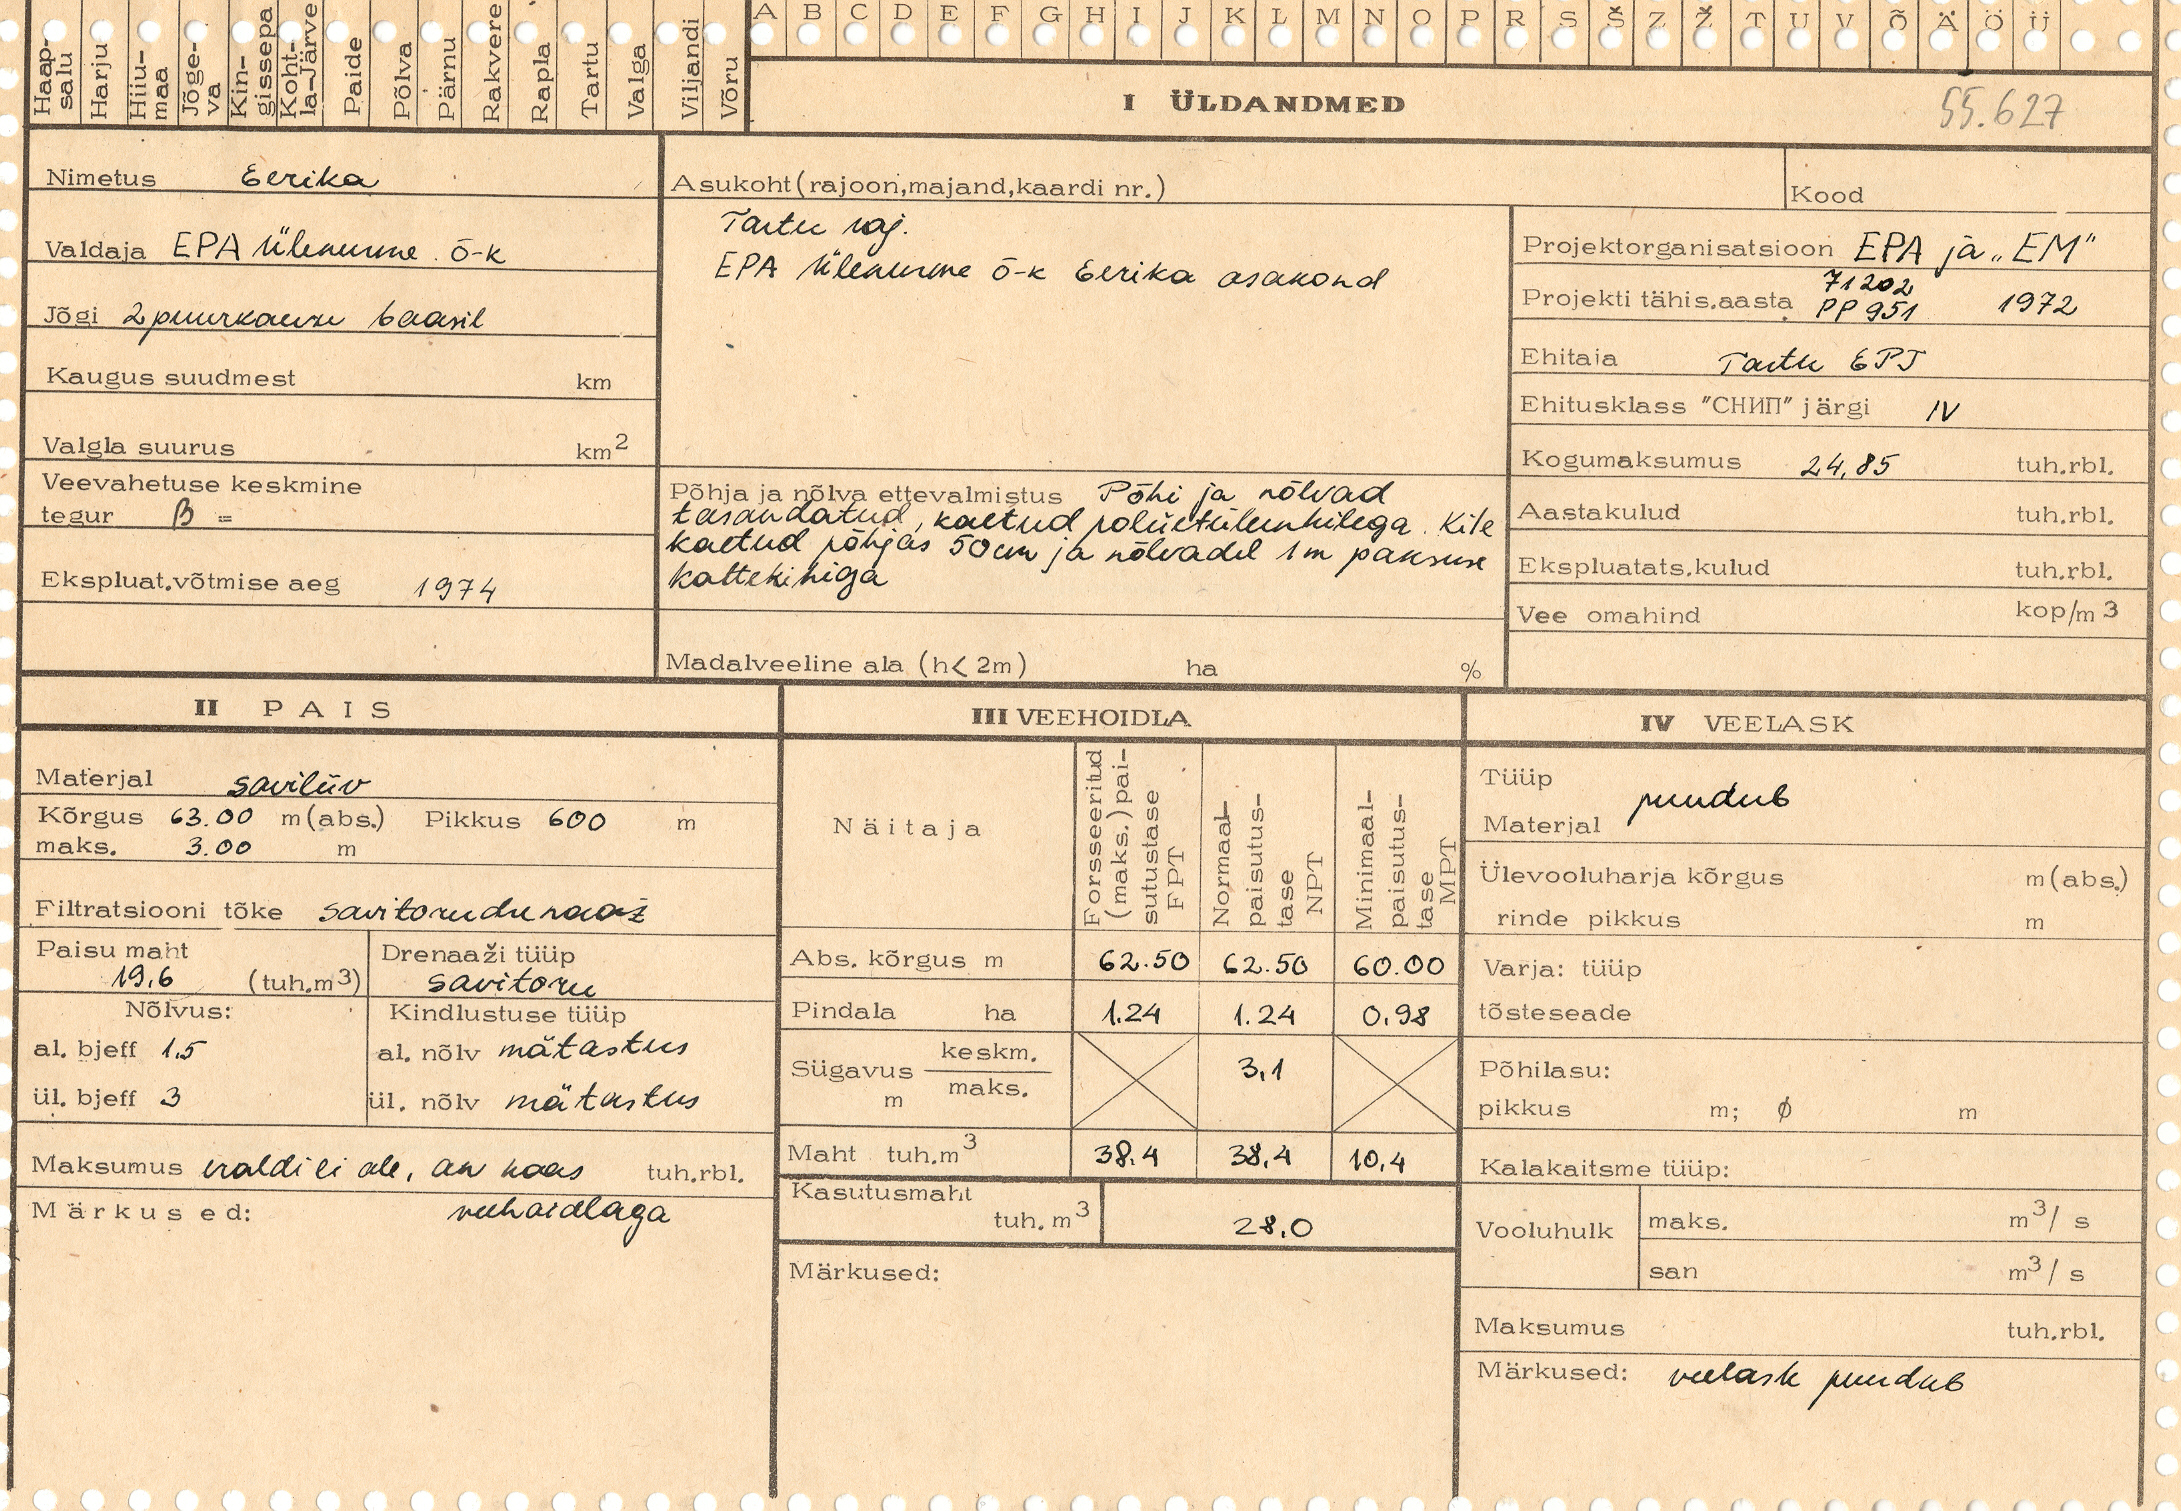 A B C D E F G H I J K L M N O P R S Š Z Ž T U V Õ Ä Ö Ü
Haap-salu Harju Hiiu-maa Jõge-va Kin-gissepa Koht-la-Järve Paide Põlva Pärnu Rakvere Rapla Tartu Valga Viljandi Võru
I ÜLDANDMED
55.627
Nimetus Eerika
Valdaja EPA Ülenurme õ-k
Jõgi 2 puurkaevu baasil
Kaugus suudmest km
Valgla suurus km2
Veevahetuse keskmine
tegur β =
Ekspluat.võtmise aeg 1974
Asukoht (rajoon,majand,kaardi nr.)
Tartu raj.
EPA Ülenurme õ-k Eerika osakond
Põhja ja nõlva ettevalmistus Põhi ja nõlvad
tasandatud, kaetud polüetüleenkilega. Kile
kaetud põhjas 50cm ja nõlvadel 1m paksuse
kattekihiga
Madalveeline ala (h< 2m) ha %
Kood
Projektorganisatsioon EPA ja „EM"
71202
Projekti tähis.aasta PP 951 1972
Ehitaja Tartu EPT
Ehitusklass "СНИП" järgi IV
Kogumaksumus 24,85 tuh.rbl.
Aastakulud tuh.rbl.
Ekspluatats.kulud tuh.rbl.
Vee omahind kop/m3
II PAIS
Materjal saviliiv
Kõrgus 63.00 m(abs.) Pikkus 600 m
maks. 3.00 m
Filtratsiooni tõke savitorudrenaaž
Paisu maht
19,6 (tuh.m3)
Drenaaži tüüp
savitoru
Nõlvus:
al. bjeff 1,5
ül. bjeff 3
Kindlustuse tüüp
al. nõlv mätastus
ül. nõlv mätastus
Maksumus eraldi ei ole, on koos tuh.rbl.
Märkused: veehoidlaga
III VEEHOIDLA
Näitaja
Forsseeritud (maks.) pai-sutustase FPT
Normaal-paisutus-tase NPT
Minimaal-paisutus-tase MPT
Abs. kõrgus m 62.50 62.50 60.00
Pindala ha 1.24 1.24 0.98
Sügavus keskm. 3,1
maks.
m
Maht tuh.m3 38.4 38,4 10,4
Kasutusmaht
tuh.m3 28,0
Märkused:
IV VEELASK
Tüüp
puudub
Materjal
Ülevooluharja kõrgus m(abs.)
rinde pikkus m
Varja: tüüp
tõsteseade
Põhilasu:
pikkus m; ϕ m
Kalakaitsme tüüp:
Vooluhulk maks. m3/s
san m3/s
Maksumus tuh.rbl.
Märkused: veelask puudub